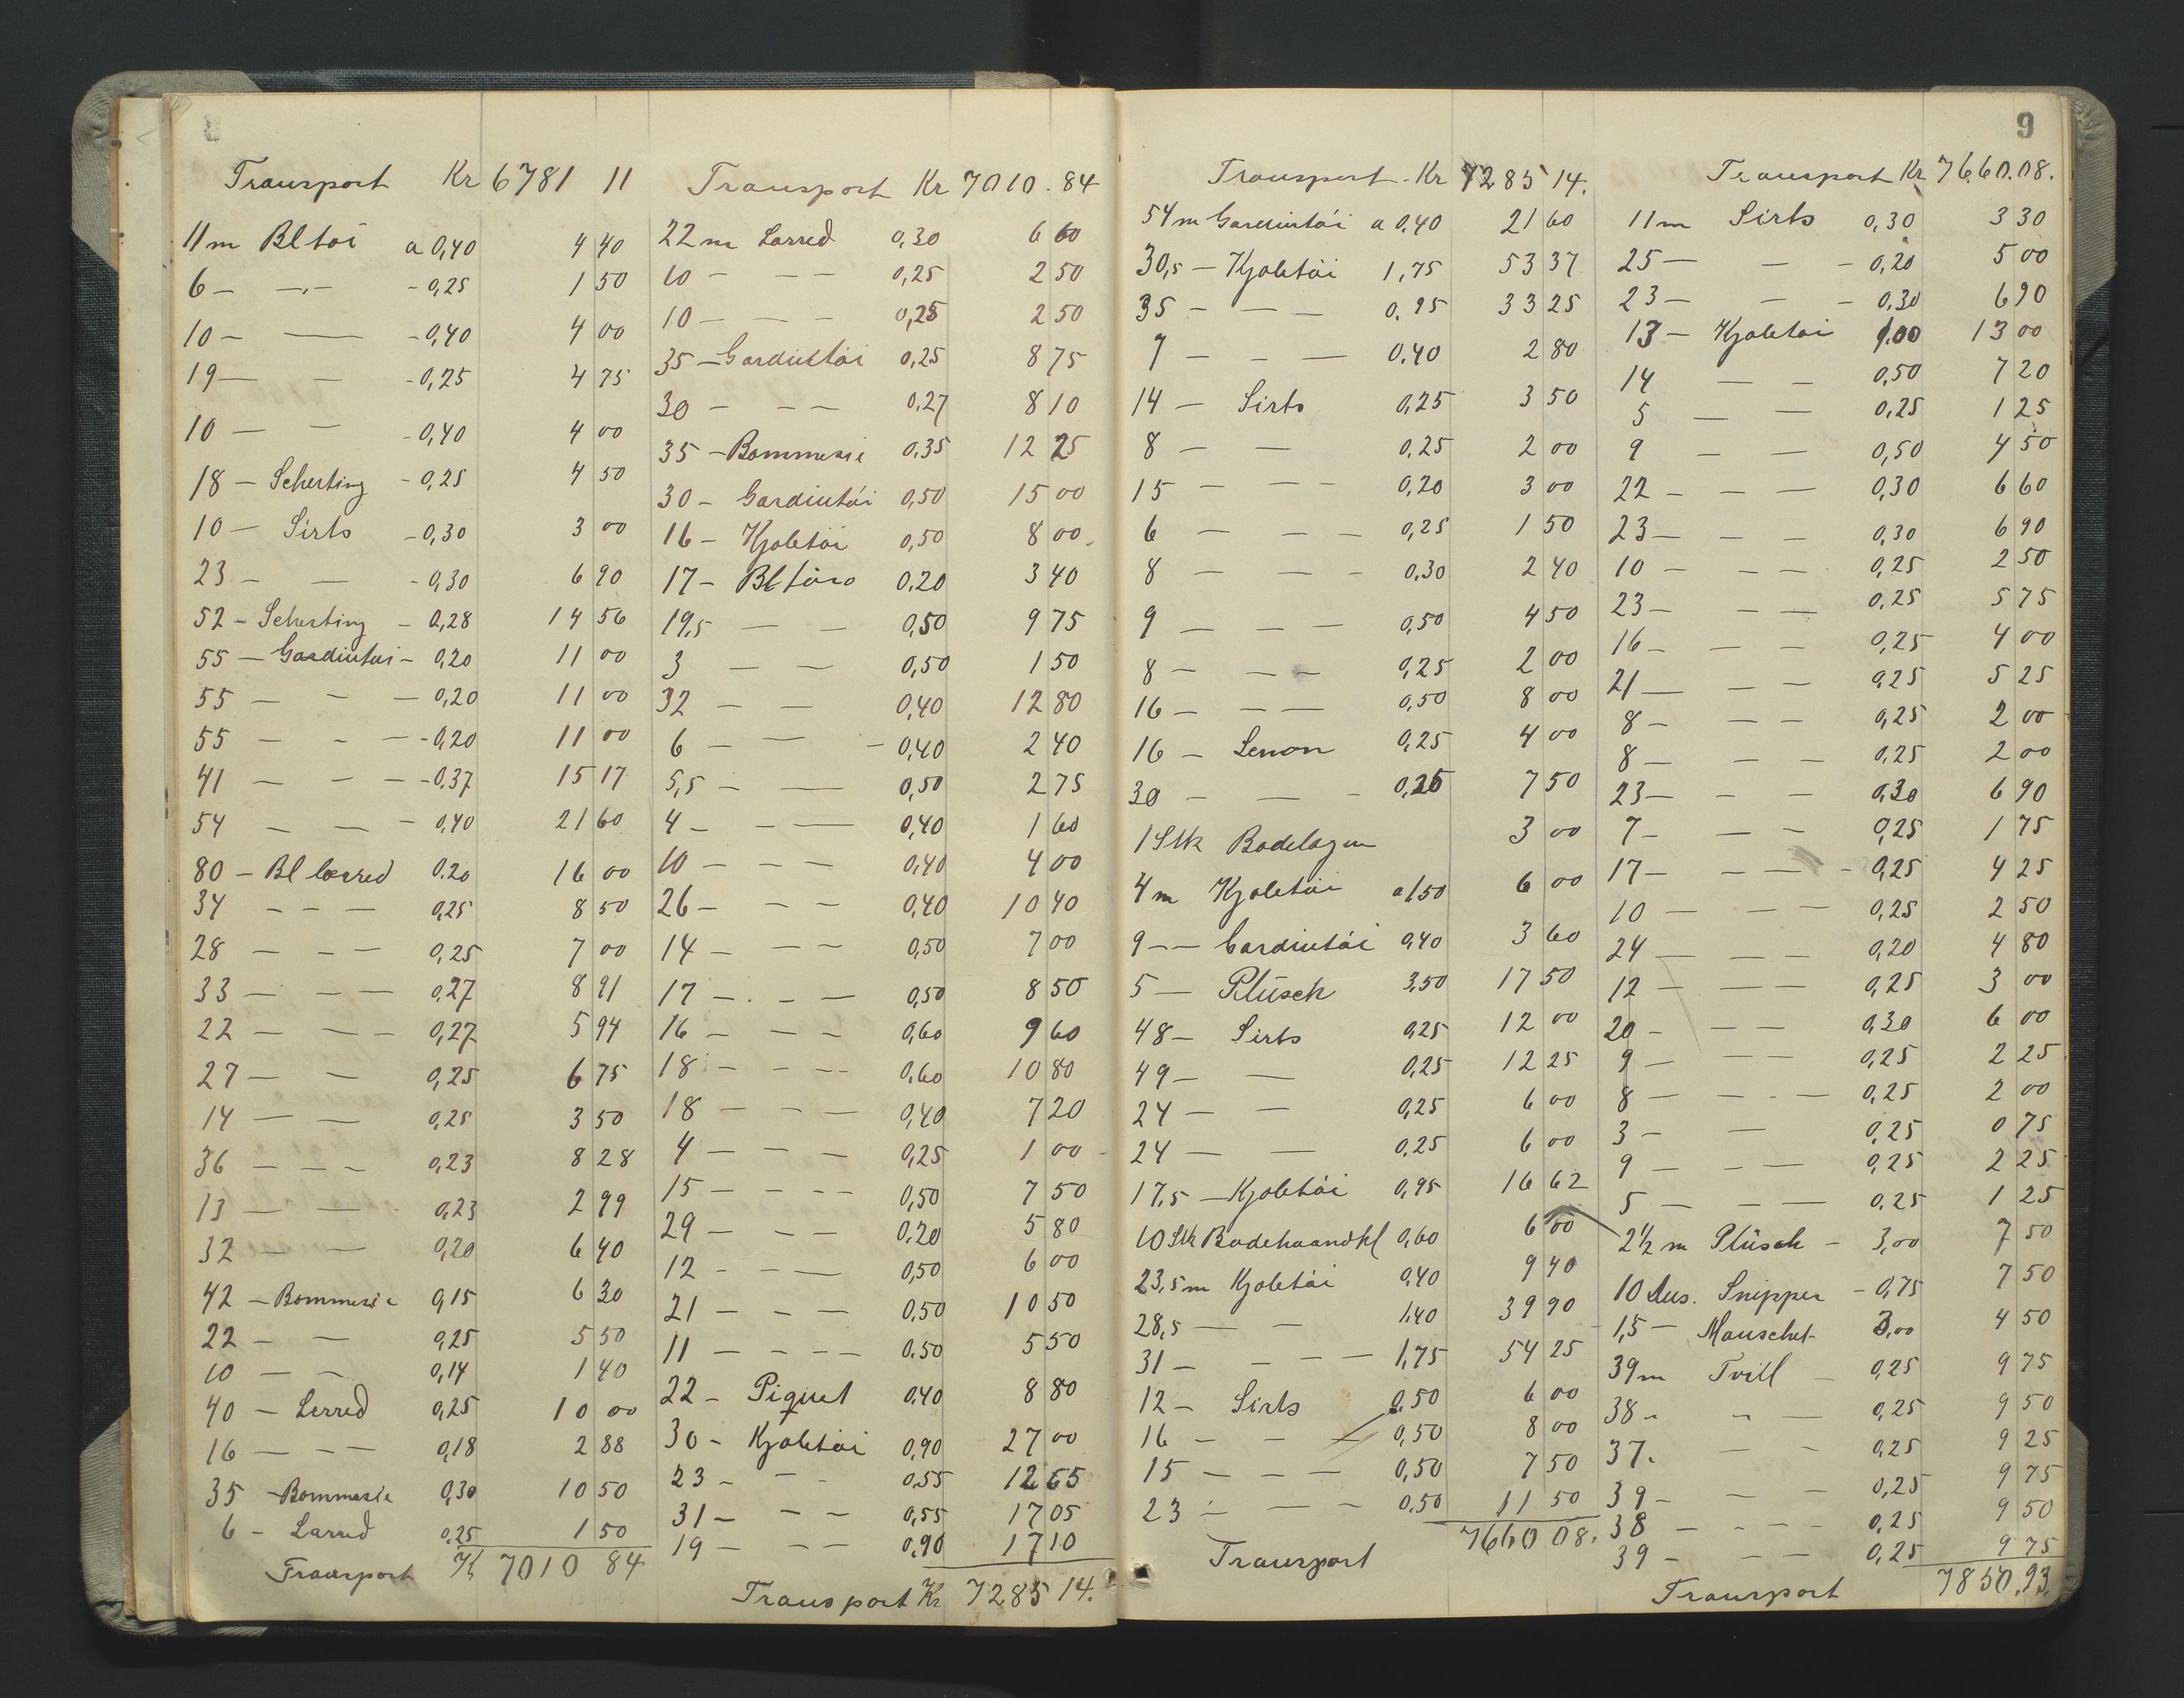 8
Transport Kr 6781 11
11 m Bl tøi a 0,40 4 40
6 - -,- - 0,25 1 50
10 - — - 0,40 4 00
19 — — - 0,25 4 75
10 — — - 0,40 4 00
18 - Scherting - 0,25 4 50
10 - Sirts - 0,30 3 00
23 - — - 0,30 6 90
52 - Scherting - 0,28 14 56
55 - Gardintøi - 0,20 11 00
55 — - — 0,20 11 00
55 — - — - 0,20 11 00
41 — - — - 0,37 15 17
54 — — - 0,40 21 60
80 - Bl lærred 0.20 16 00
34 - - - 0,25 8 50
28 - - - 0,25 7 00
33 - - - 0,27 8 91
22 - - - 0,27 5 94
27 - - 0,25 6 75
14 - - 0,25 3 50
36 - - - 0,23 8 28
13 - - 0,23 2 99
32 - - 0,20 6 40
42 - Bommesie 0,15 6 30
22 - - 0,25 5 50
10 - - 0,14 1 40
40 - Lerred 0,25 10 00
16 - - - 0,18 2 88
35 - Bommesie 0,30 10 50
6 - Lærred 0,25 1 50
Transport Kr 7010 84
Transport Kr 7010.84
22 m Lærred 0,30 6 60
10 - - - 0,25 2 50
10 - - - 0,25 2 50
35 - Gardintøi 0,25 8 75
30 - - - 0,27 8 10
35 - Bommesie 0,35 12 25
30 - Gardintøi 0,50 15 00
16 - Kjoletøi 0,50 8 00
17 - Bl tøi 0,20 3 40
19,5 - - 0,50 9 75
3 - - 0,50 1 50
32 - - 0,40 12 80
6 - - - 0,40 2 40
5,5 - - 0,50 2 75
4 - - - 0,40 1 60
10 - - - 0,40 4 00
26 - - - 0,40 10 40
14 - - - 0,50 7 00
17 - - - 0,50 8 50
16 - - - 0,60 9 60
18 - - - 0,60 10 80
18 - - - 0,40 7 20
4 - - - 0,25 1 00
15 - - - 0,50 7 50
29 - - - 0,20 5 80
12 - - - 0,50 6 00
21 - - - 0,50 10 50
11 - - - - 0.50 5 50
22 - Piquet 0,40 8 80
30 - Kjoletøi 0,90 27 00
23 - - - 0,55 12 65
31 - - - 0,55 17 05
19 - - - 0,90 17 10
Transport Kr 7285 14.
Transport Kr 7285 14.
54 m Gardintøi a 0,40 21 60
30,5 - Kjoletøi 1,75 53 37
35 - - - 0,95 33 25
7 - - - 0,40 2 80
14 - Sirts 0,25 3 50
8 - - 0,25 2 00
15 - - - 0,20 3 00
6 - - - 0,25 1 50
8 - - - 0,30 2 40
9 - - - 0,50 4 50
8 - - - 0,25 2 00
16 - - - 0,50 8 00
16 - Lenon 0,25 4 00
30 - - - 0,25 7 50
1 Stk Badelagen 3 00
4 m Kjoletøi a 1,50 6 00
9 -- Gardintøi 0,40 3 60
5 - Plüsch 3,50 17 50
48 - Sirts 0,25 12 00
49 - - 0,25 12 25
24 - - 0,25 6 00
24 - - 0,25 6 00
17,5 - Kjoletøi 0,95 16 62
10 Stk Badehaandkl 0,60 6 00
23,5 m Kjoletøi 0,40 9 40
28,5 - - 1,40 39 90
31 - - - - 1,75 54 25
12 - Sirts 0,50 6 00
16 - - - 0,50 8 00
15 - - - 0,50 7 50
23 - - - 0,50 11 50
Transport 7660 08.
9
Transport Kr 7660.08.
11 m Sirts 0,30 3 30
25 - - - 0,20 5 00
23 - - - 0,30 6 90
13 - Kjoletøi 1.00 13 00
14 - - 0,50 7 20
5 - - 0,25 1 25
9 - - - 0,50 4 50
22 - - - 0,30 6 60
23 - - - 0,30 6 90
10 - - - 0,25 2 50
23 - - - 0,25 5 75
16 - - - 0,25 4 00
21 - - - 0,25 5 25
8 - - - 0,25 2 00
8 - - - 0,25 2 00
23 - - - 0,30 6 90
7 - - - 0,25 1 75
17 - - - - 0,25 4 25
10 - - - 0,25 2 50
24 - - - 0,20 4 80
12 - - - 0,25 3 00
20 - - - 0,30 6 00
9 - - - 0,25 2 25
8 - - - 0,25 2 00
3 - - 0,25 0 75
9 - - - 0,25 2 25
5 - - - 0,25 1 25
2½ m Plüsch - 3,00 7 50
10 dus. Snipper - 0,75 7 50
1,5 - Manschet 3,00 4 50
39 m Tvill - 0,25 9 75
38 - - - 0,25 9 50
37. - - 0,25 9 25
39 - - - 0,25 9 75
38 - - - - 0,25 9 50
39 - - - 0,25 9 75
Transport 7850.93.